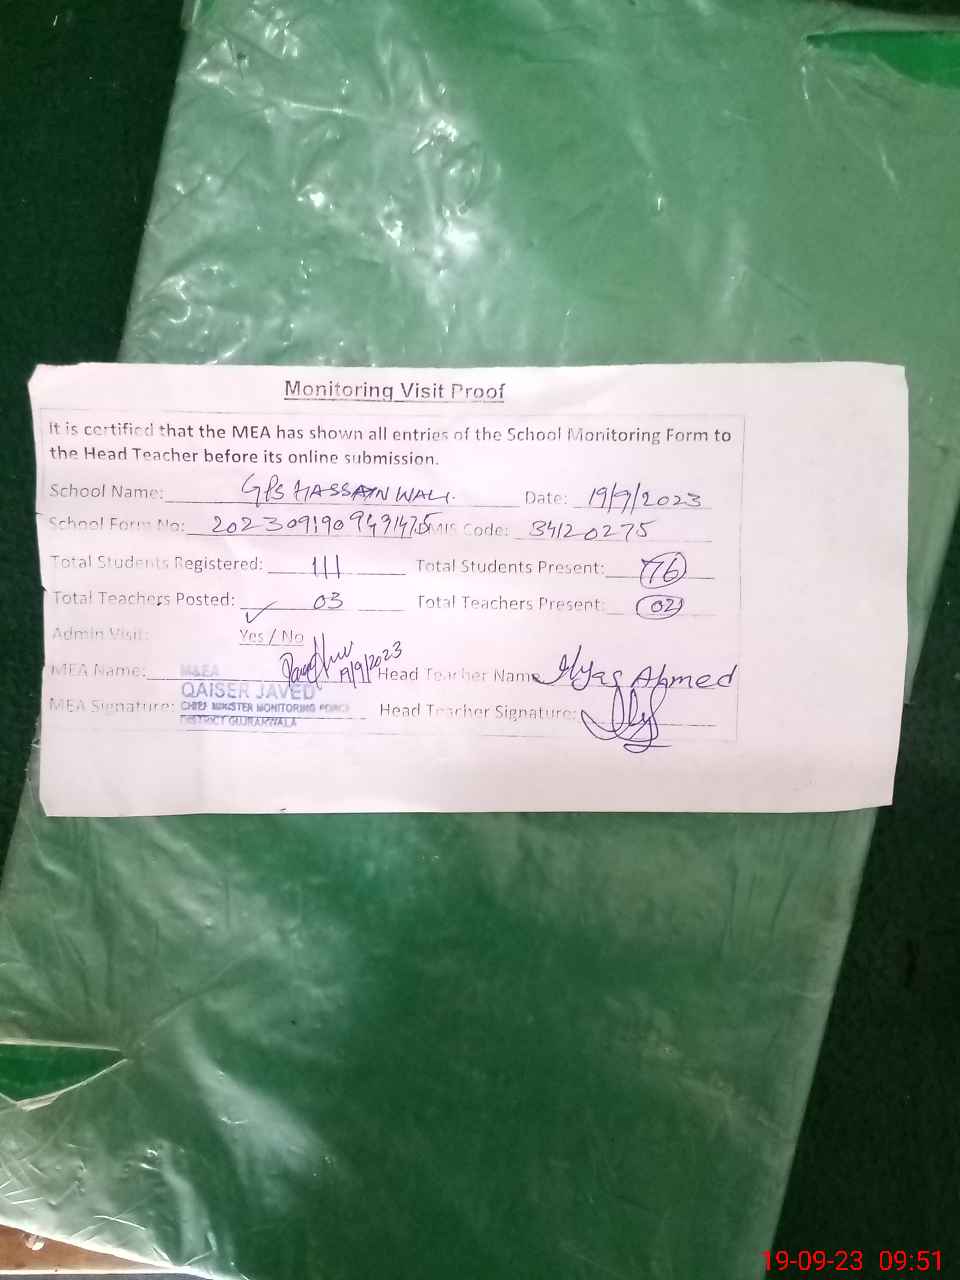 Monitoring Visit Proof
It is certified that the MEA has shown all entries of the School Monitoring Form to
the Head Teacher before its online submission.
School Name: GPS HASSAIN WALI. Date: 19/9/2023
School Form No: EMIS Code: 34120275
Total Students Registered: 111 Total Students Present: 76
Total Teachers Posted: 03 Total Teachers Present: 02
Admin Visit: Yes / No
MEA Name: M&EA 19/9/2023 Head Teacher Name Ilyas Ahmed
QAISER JAVED
MEA Signature: CHIEF MINISTER MONITORING FORCE Head Teacher Signature:
DISTRICT GUJRANWALA
19-09-23 09:51